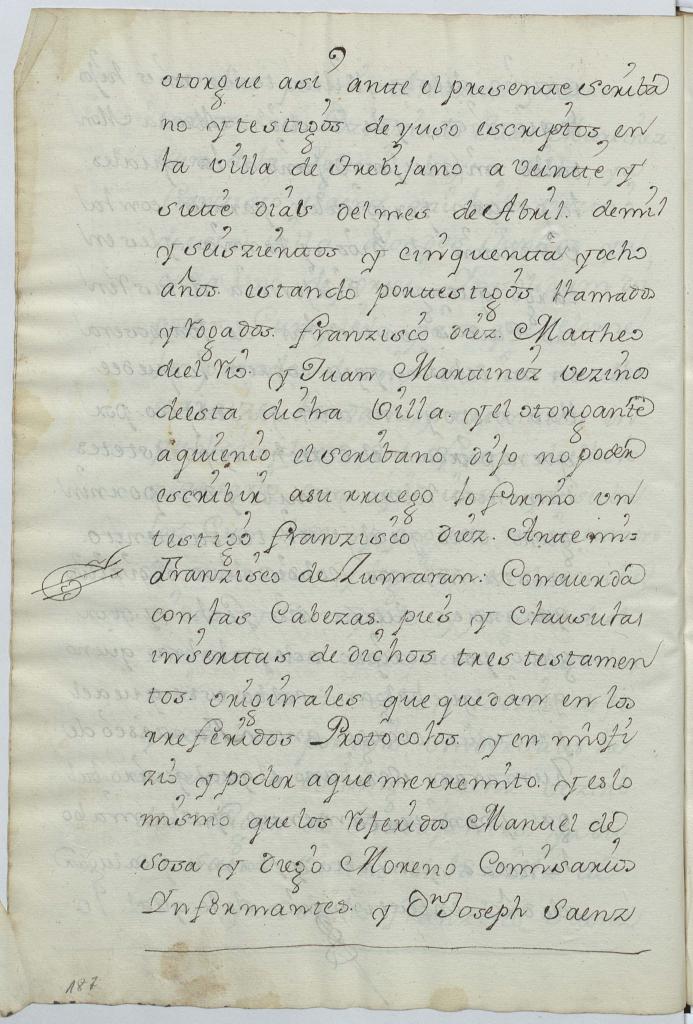 otorgue asi antte el presentte escriba
no y testigos de yuso escriptos en
la Villa de Trebijano a Veintte y
siette dias del mes de Abril. de mil
y seiszienttos y cinquentta y ocho
años. estando por ttestigos llamados
y Rogados. franzisco diez. Mattheo
del Rio. y Juan Marttinez vezinos
de esta dicha Villa. y el otorgantte
a quien io el scribano dijo no poder
escribir a su rruego lo firmo un
testigo franzisco diez. Antte mi=
Franzisco de Zumaran: Concuerda
con las Cabezas. pies y Clausulas
inserttas de dichos tres testamen
tos. originales que quedan en los
rreferidos Protocolos. y en mi ofi
zio y poder a que me rremito. y es lo
mismo que los Referidos Manuel de
Sosa y Diego Moreno Comisarios
Informantes. y Dn Joseph Saenz
187